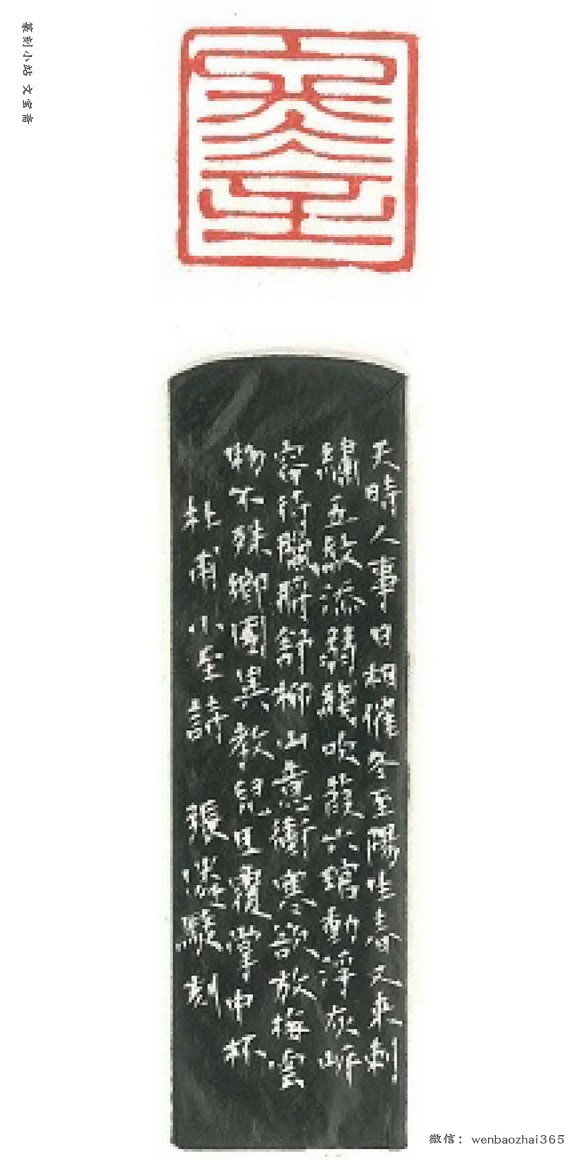 篆刻小站 文宝斋
冬至
天時人事日相催冬至陽生春又來刺
繡五紋添弱綫吹葭六琯動浮灰岸
容待臘將舒柳山意衝寒欲放梅雲
物不殊鄉國異教兒且覆掌中杯
杜甫小至詩 張 駿刻
微信：wenbaozhai365